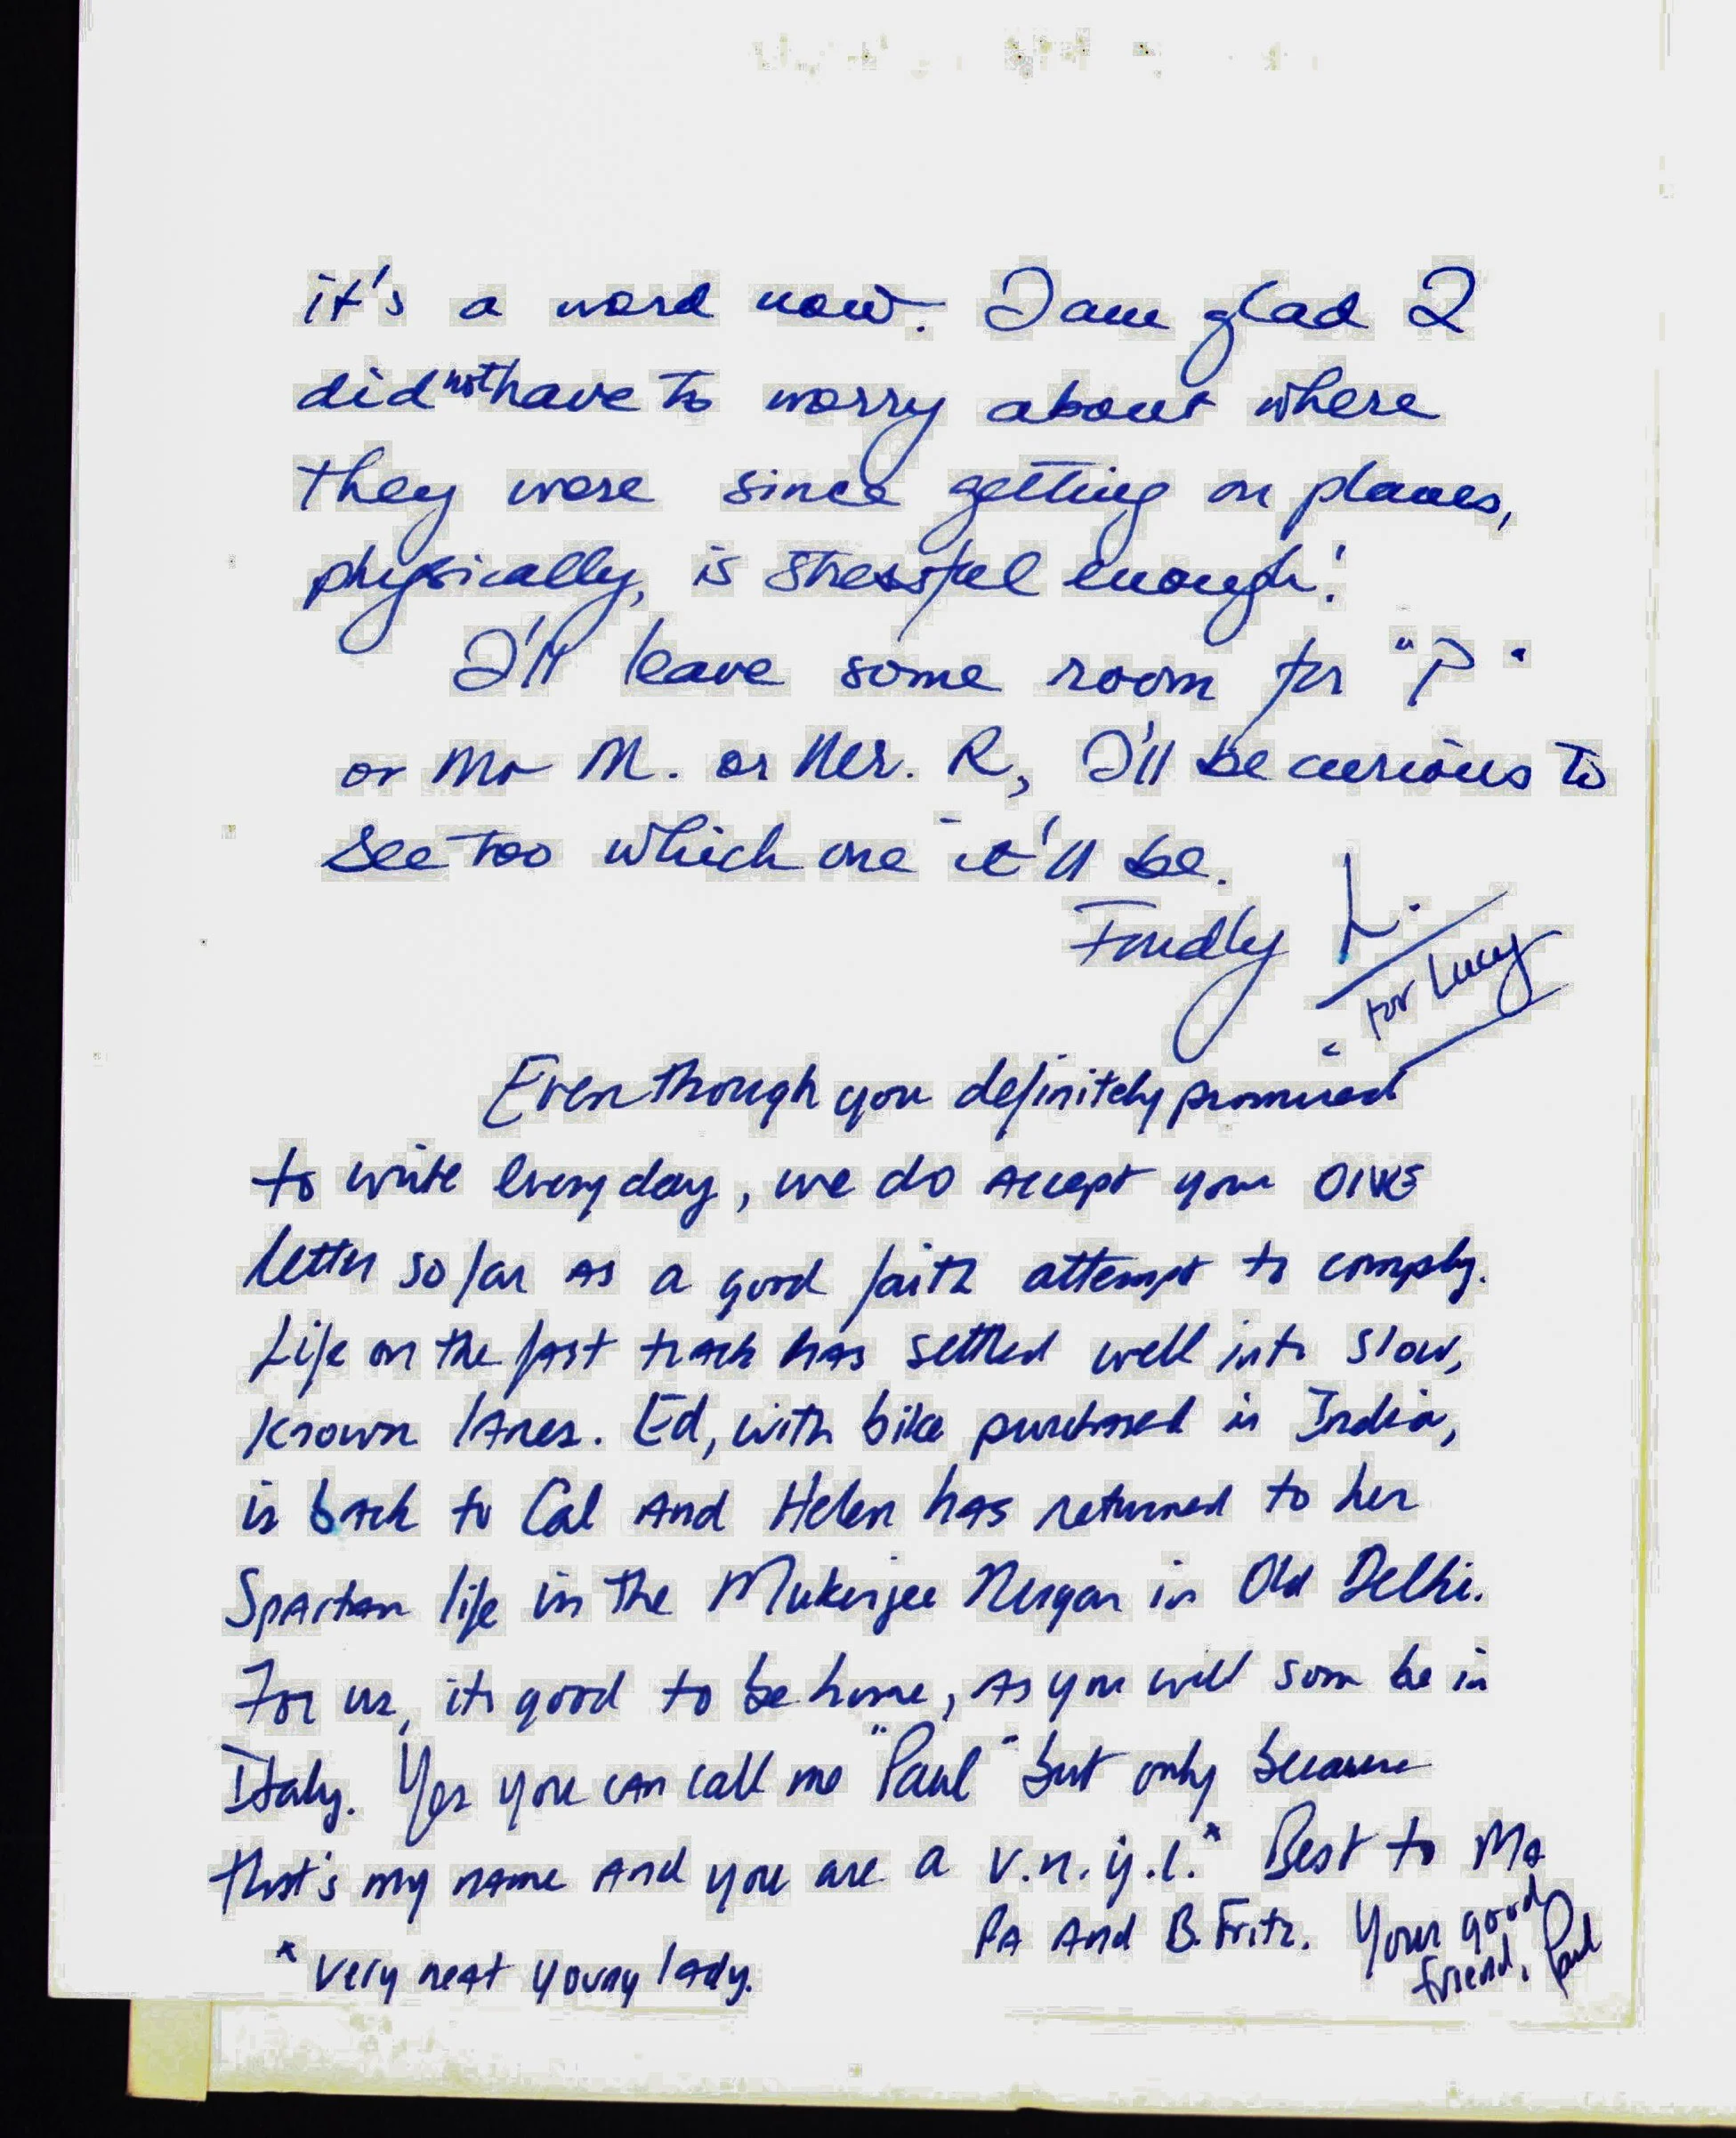 it's a word now. I am glad I
did not have to worry about where
they were since getting on planes,
physically, is stressful enough!
I'll leave some room for "P"
or Mr M. or Mr. R, I'll be curious to
see too which one it'll be.
Fondly L.
for Lucy
Even though you definitely promised
to write everyday, we do accept your ONE
letter so far as a good faith attempt to comply.
Life on the fast track has settled well into slow,
known lanes. Ed, with bike purchased in India,
is back to Cal And Helen has returned to her
Spartan life in the Mukerjee Nugar in Old Delhi.
For us, its good to be home, As you will soon be in
Italy. Yes you can call me "Paul" but only because
that's my name And you are a v.n.y.l.* Best to Ma
Pa And B. Fritz. Your good
friend, Paul
* very neat young lady.